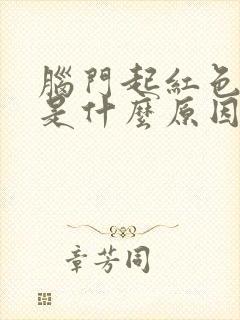 腦門起紅色
是什麼原因
章芳同